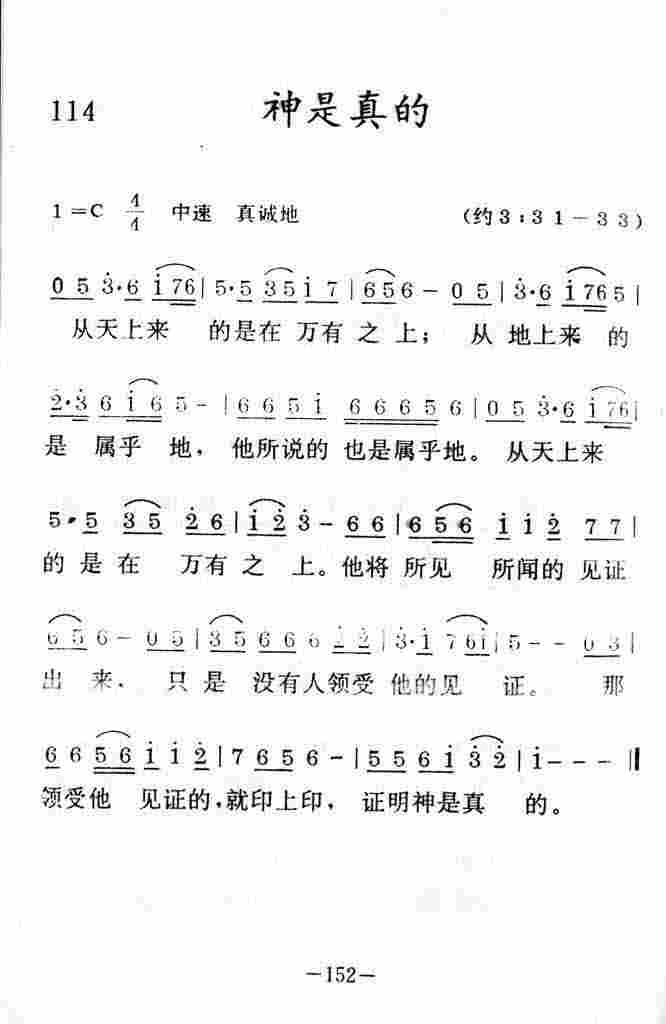 114 神是真的
1=C 4/4 中速 真诚地 (约3:31-33)
0 5 3·6 i76 | 5·5 35i 7 | 656- 0 5 | 3·6 i765 |
从天上来 的是在 万有 之 上； 从 地上来 的
2·3 6 i6 5- | 6 6 5 i 6 6 6 5 6 | 0 5 3·6 i76 |
是 属乎 地， 他所说的 也是属乎地。 从天上来
5·5 35 26 | i23- 66 | 656 ii2 77 |
的 是 在 万有 之 上。他将 所见 所闻的 见证
656- 05 | 35666 i2 | 3·i 76i | 5-- 03 |
出 来， 只 是 没有人领受 他的见 证。 那
6 6 56 i i 2 | 7 656- | 556i 32 | i--- ‖
领受他 见证的，就印上印， 证明神是真 的。
-152-